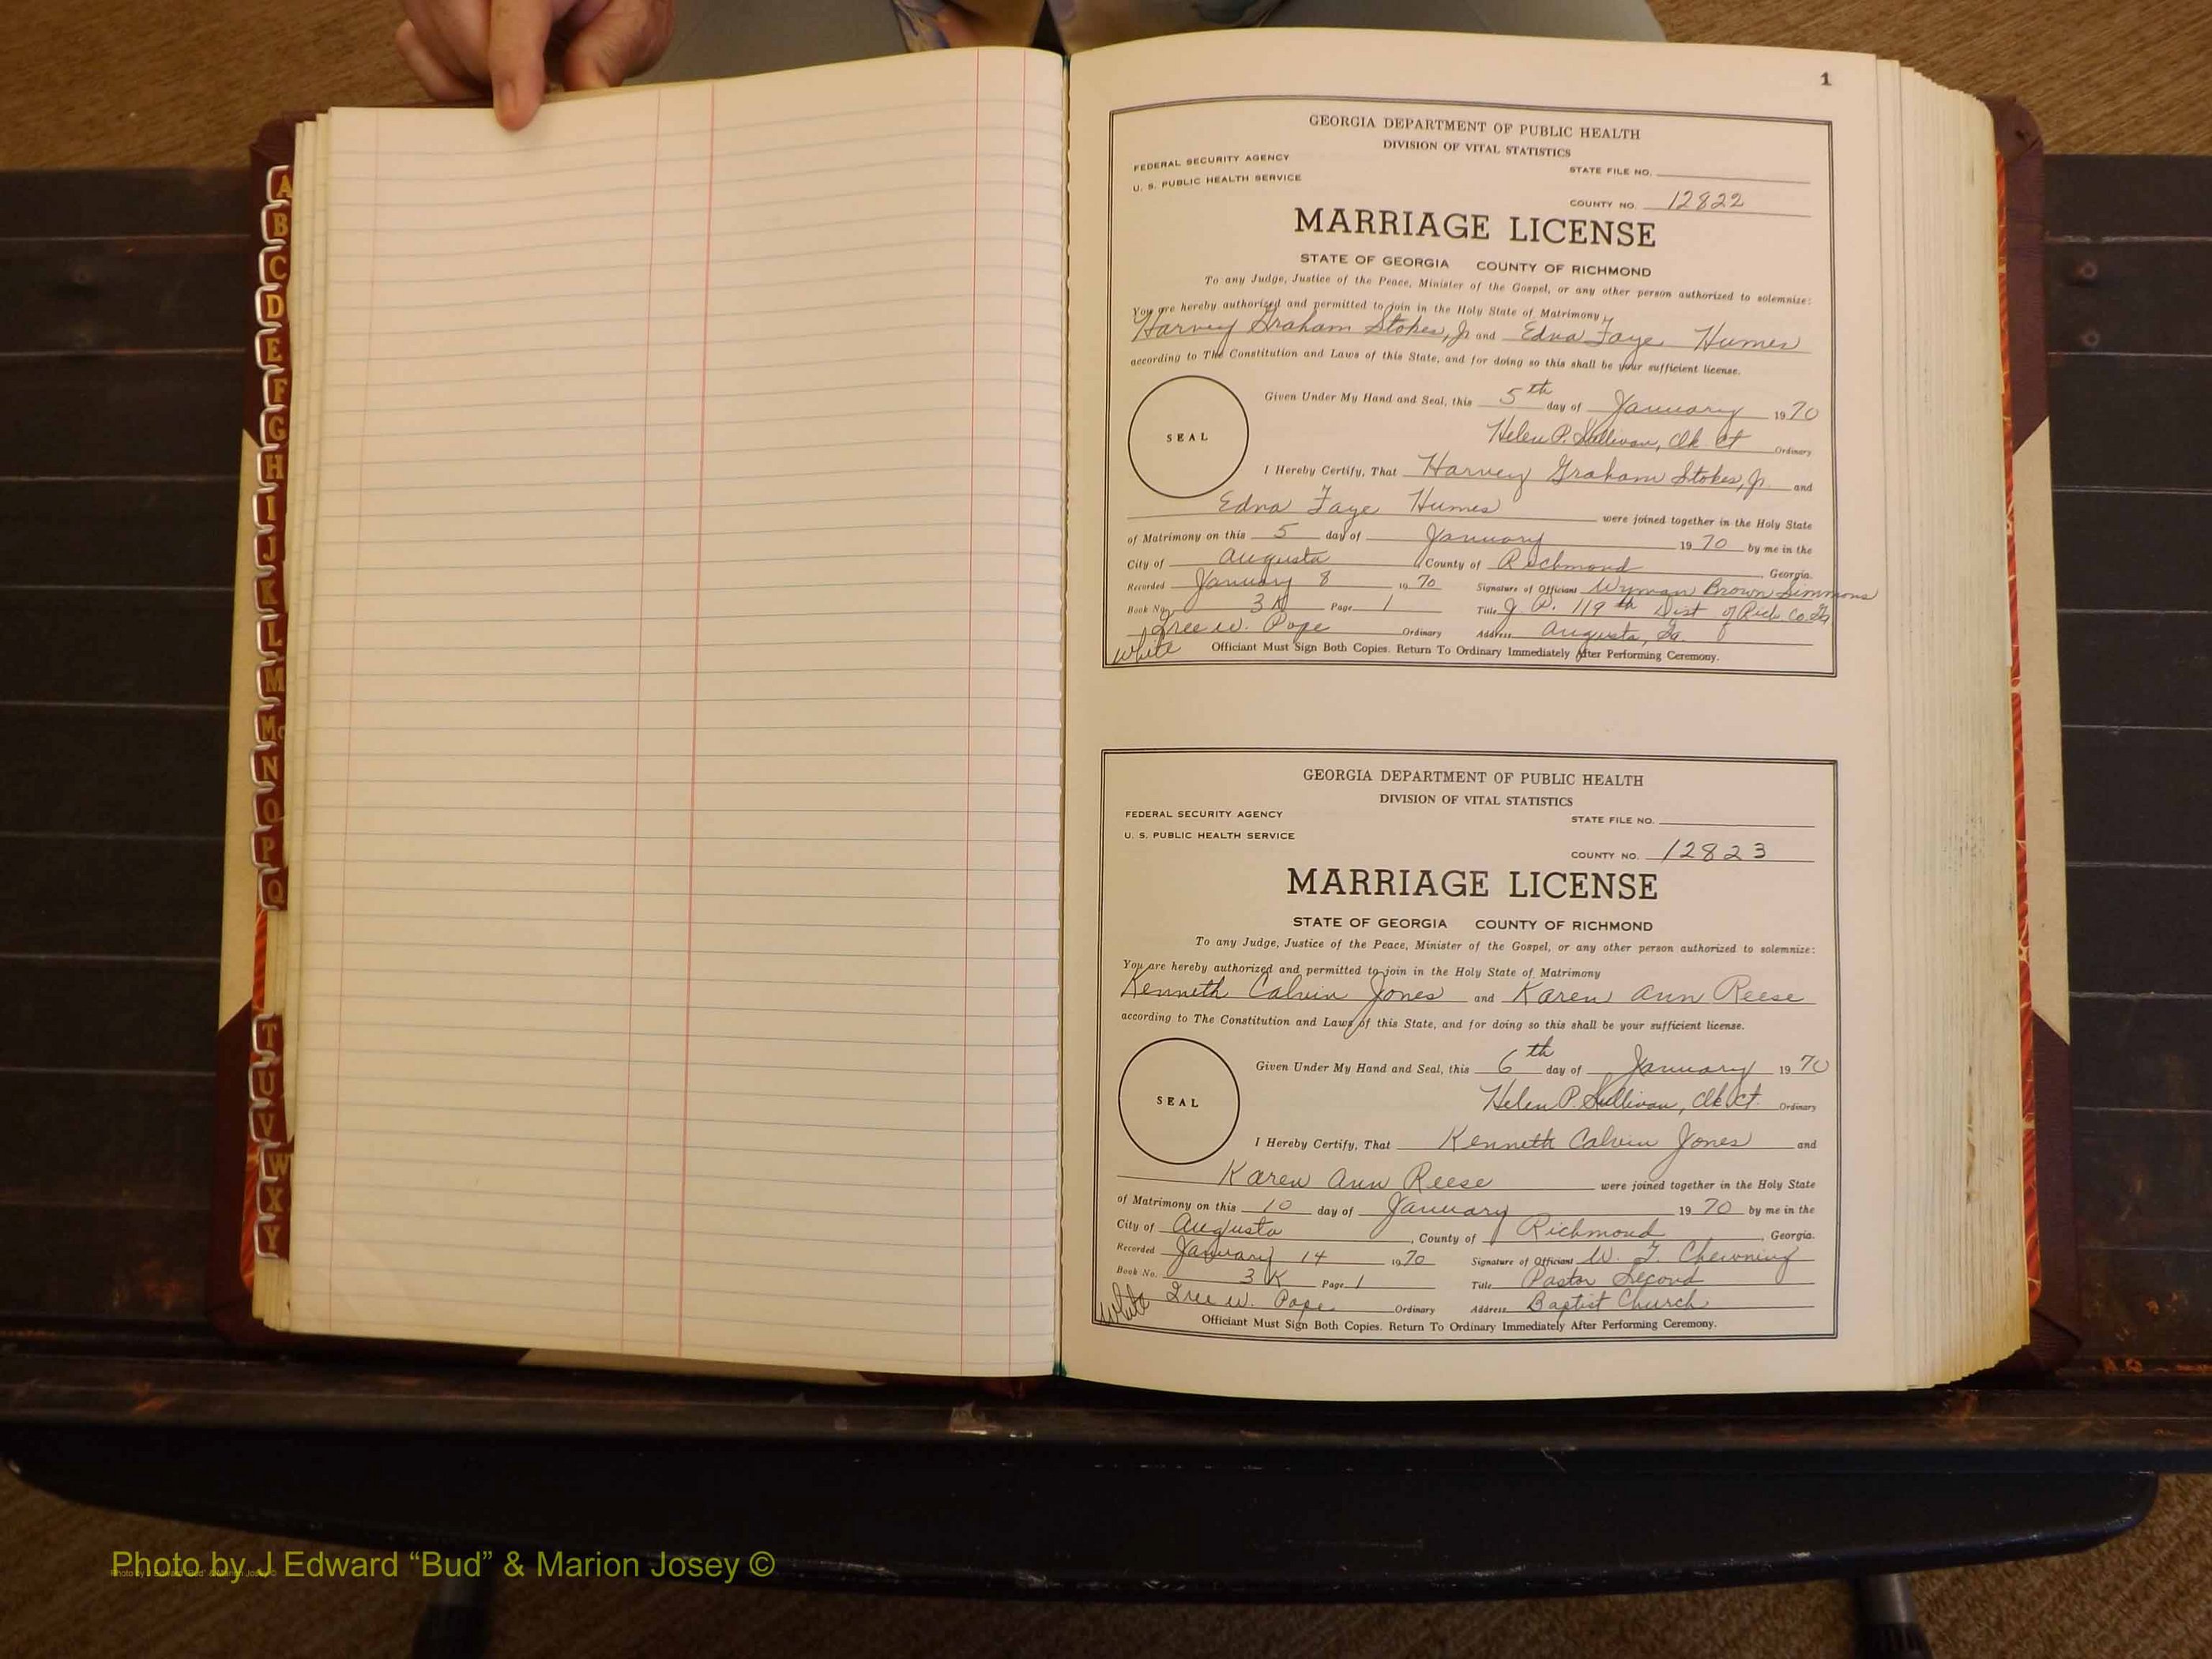 A
B
C
D
E
F
G
H
I
J
K
L
M
Mc
N
O
P
Q
T
U
V
W
X
Y
1
GEORGIA DEPARTMENT OF PUBLIC HEALTH
DIVISION OF VITAL STATISTICS
FEDERAL SECURITY AGENCY
U. S. PUBLIC HEALTH SERVICE
STATE FILE NO.
COUNTY NO. 12822
MARRIAGE LICENSE
STATE OF GEORGIA COUNTY OF RICHMOND
To any Judge, Justice of the Peace, Minister of the Gospel, or any other person authorized to solemnize:
You are hereby authorized and permitted to join in the Holy State of Matrimony
Harvey Graham Stokes, Jr and Edna Faye Humes
according to The Constitution and Laws of this State, and for doing so this shall be your sufficient license.
Given Under My Hand and Seal, this 5th day of January 1970
SEAL
Helen P. Sullivan, Clk Ct Ordinary
I Hereby Certify, That Harvey Graham Stokes, Jr. and
Edna Faye Humes were joined together in the Holy State
of Matrimony on this 5 day of January 1970 by me in the
City of Augusta County of Richmond, Georgia.
Recorded January 8 1970 Signature of Officiant Wyman Brown Simmons
Book No. 3K Page 1 Title J. P. 119th Dist of Rich. Co. Ga
W. Pope Ordinary Address Augusta, Ga.
White
Officiant Must Sign Both Copies. Return To Ordinary Immediately After Performing Ceremony.
GEORGIA DEPARTMENT OF PUBLIC HEALTH
DIVISION OF VITAL STATISTICS
FEDERAL SECURITY AGENCY
U. S. PUBLIC HEALTH SERVICE
STATE FILE NO.
COUNTY NO. 12823
MARRIAGE LICENSE
STATE OF GEORGIA COUNTY OF RICHMOND
To any Judge, Justice of the Peace, Minister of the Gospel, or any other person authorized to solemnize:
You are hereby authorized and permitted to join in the Holy State of Matrimony
Kenneth Calvin Jones and Karen Ann Reese
according to The Constitution and Laws of this State, and for doing so this shall be your sufficient license.
Given Under My Hand and Seal, this 6th day of January 1970
SEAL
Helen P. Sullivan, Clk Ct. Ordinary
I Hereby Certify, That Kenneth Calvin Jones and
Karen Ann Reese were joined together in the Holy State
of Matrimony on this 10 day of January 1970 by me in the
City of Augusta, County of Richmond, Georgia.
Recorded January 14 1970 Signature of Officiant W. T. Chewning
Book No. 3K Page 1 Title Pastor Second
W. Pope Ordinary Address Baptist Church
White
Officiant Must Sign Both Copies. Return To Ordinary Immediately After Performing Ceremony.
Photo by J Edward “Bud” & Marion Josey ©
Photo by J Edward “Bud” & Marion Josey ©